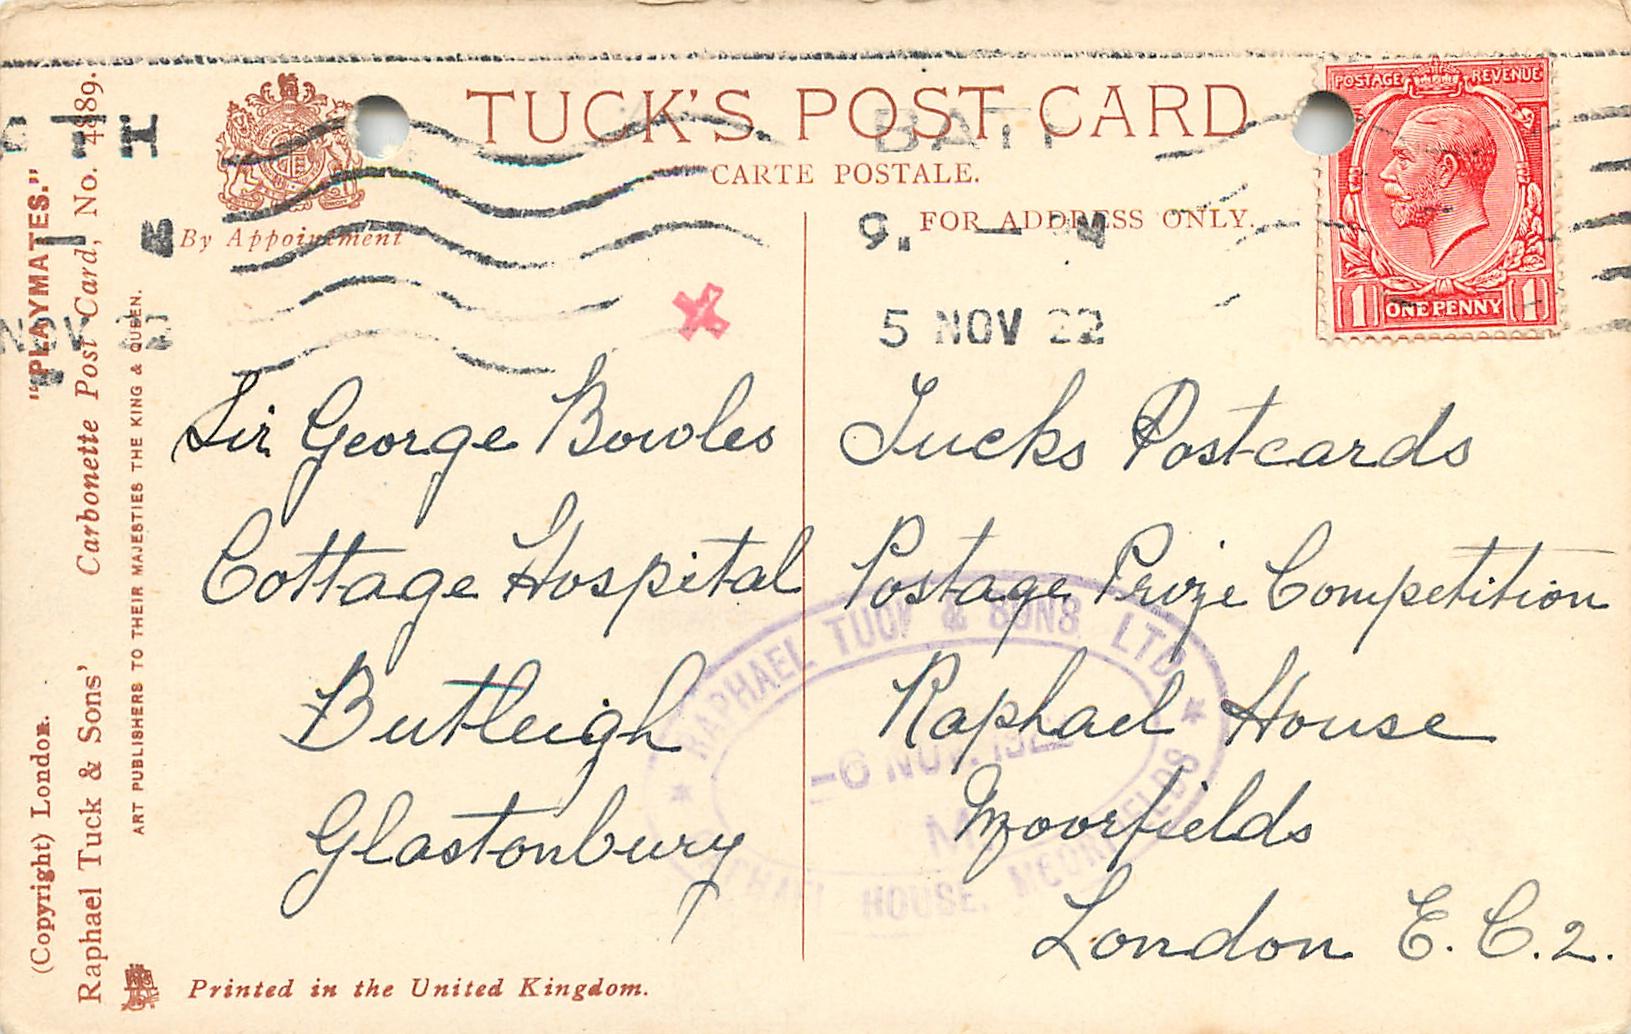 TUCK'S POST CARD
CARTE POSTALE.
FOR ADDRESS ONLY.
By Appointment
POSTAGE REVENUE
1 ONE PENNY 1
BATH
5 NOV 22
Sir George Bowles
Cottage Hospital
Butleigh
Glastonbury
Tucks Postcards
Postage Prize Competition
Raphael House
Moorfields
London E.C.2.
RAPHAEL TUCK & SONS LTD
-6 NOV. 1922
RAPHAEL HOUSE, MOORFIELDS
"PLAYMATES."
Carbonette Post Card, No. 4889.
ART PUBLISHERS TO THEIR MAJESTIES THE KING & QUEEN.
(Copyright) London.
Raphael Tuck & Sons'
Printed in the United Kingdom.